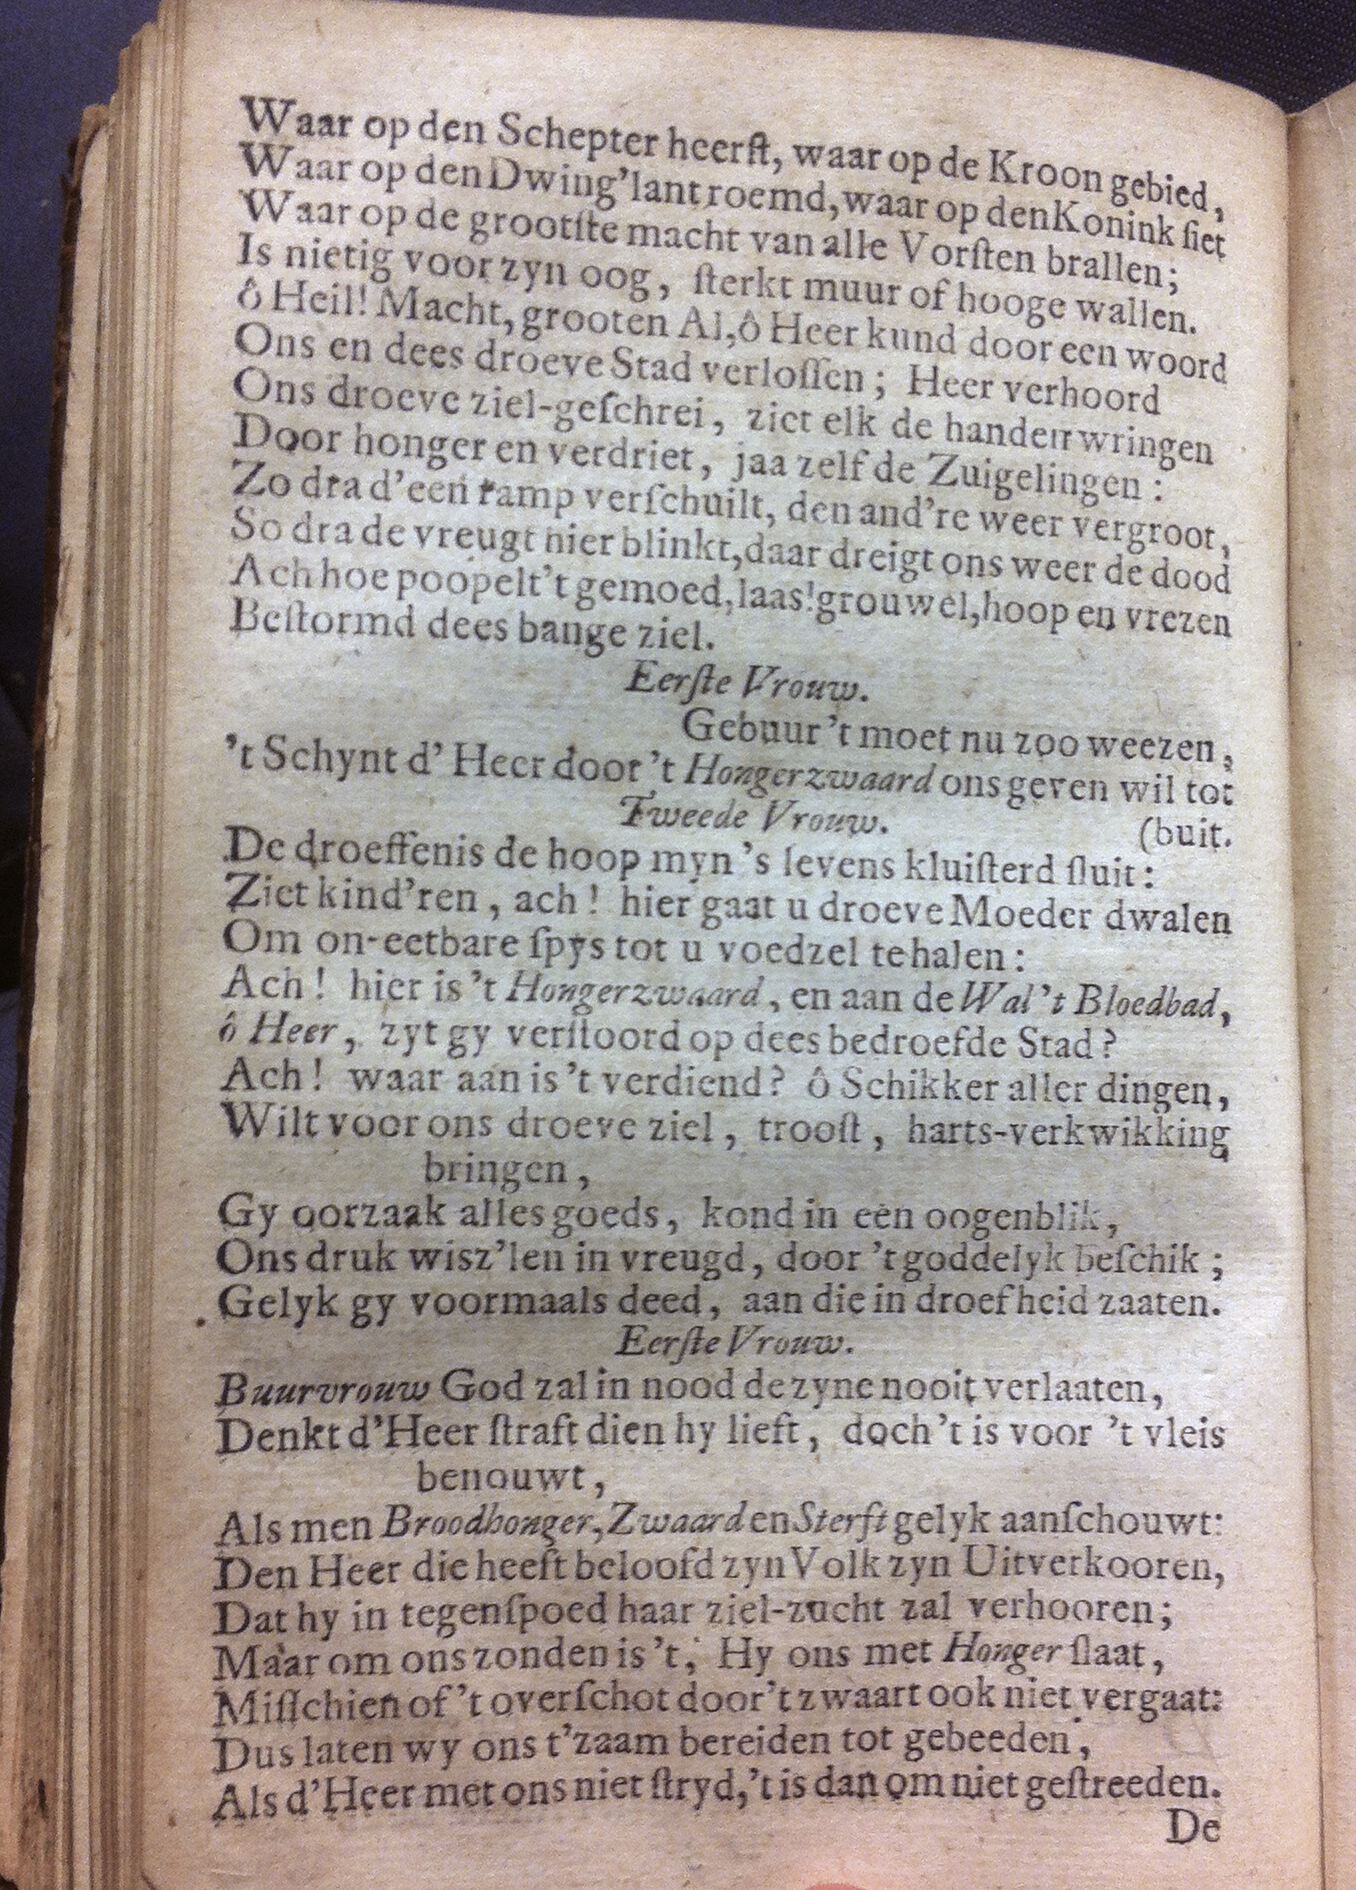 Waar op den Schepter heerſt, waar op de Kroon gebied,
Waar op den Dwing'lant roemd, waar op den Konink ſiet
Waar op de grootſte macht van alle Vorſten brallen;
Is nietig voor zyn oog, ſterkt muur of hooge wallen.
ô Heil! Macht, grooten Al, ô Heer kund door een woord
Ons en dees droeve Stad verloſſen; Heer verhoord
Ons droeve ziel-geſchrei, ziet elk de handen wringen
Door honger en verdriet, jaa zelf de Zuigelingen:
Zo dra d'een ramp verſchuilt, den and're weer vergroot,
So dra de vreugt hier blinkt, daar dreigt ons weer de dood
Ach hoe poopelt 't gemoed, laas! grouwel, hoop en vrezen
Beſtormd dees bange ziel.
Eerſte Vrouw.
Gebuur 't moet nu zoo weezen,
't Schynt d' Heer door 't Hongerzwaard ons geven wil tot
Tweede Vrouw. (buit.
De droeffenis de hoop myn 's levens kluiſterd ſluit:
Ziet kind'ren, ach! hier gaat u droeve Moeder dwalen
Om on-eetbare ſpys tot u voedzel te halen:
Ach! hier is 't Hongerzwaard, en aan de Wal 't Bloedbad,
ô Heer, zyt gy verſtoord op dees bedroefde Stad?
Ach! waar aan is 't verdiend? ô Schikker aller dingen,
Wilt voor ons droeve ziel, trooſt, harts-verkwikking
bringen,
Gy oorzaak alles goeds, kond in een oogenblik,
Ons druk wisz'len in vreugd, door 't goddelyk beſchik;
Gelyk gy voormaals deed, aan die in droefheid zaaten.
Eerſte Vrouw.
Buurvrouw God zal in nood de zyne nooit verlaaten,
Denkt d'Heer ſtraft dien hy lieft, doch 't is voor 't vleis
benouwt,
Als men Broodhonger, Zwaard en Sterft gelyk aanſchouwt:
Den Heer die heeft beloofd zyn Volk zyn Uitverkooren,
Dat hy in tegenſpoed haar ziel-zucht zal verhooren;
Maar om ons zonden is 't, Hy ons met Honger ſlaat,
Miſſchien of 't overſchot door 't zwaart ook niet vergaat:
Dus laten wy ons t'zaam bereiden tot gebeeden,
Als d'Heer met ons niet ſtryd, 't is dan om niet geſtreeden.
De